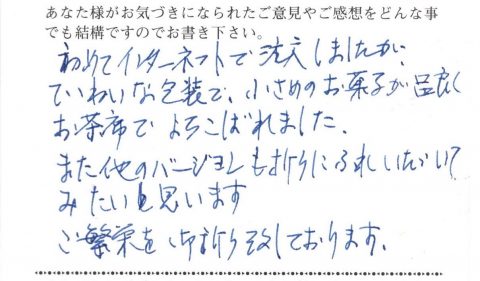 あなた様がお気づきになられたご意見やご感想をどんな事
でも結構ですのでお書き下さい。
初めてインターネットで注入しましたが、
ていねいな包装で、小さめのお菓子が品良く
お茶席でよろこばれました。
また他のバージョンも折りにふれいただいて
みたいと思います
ご繁栄を御祈り致しております。